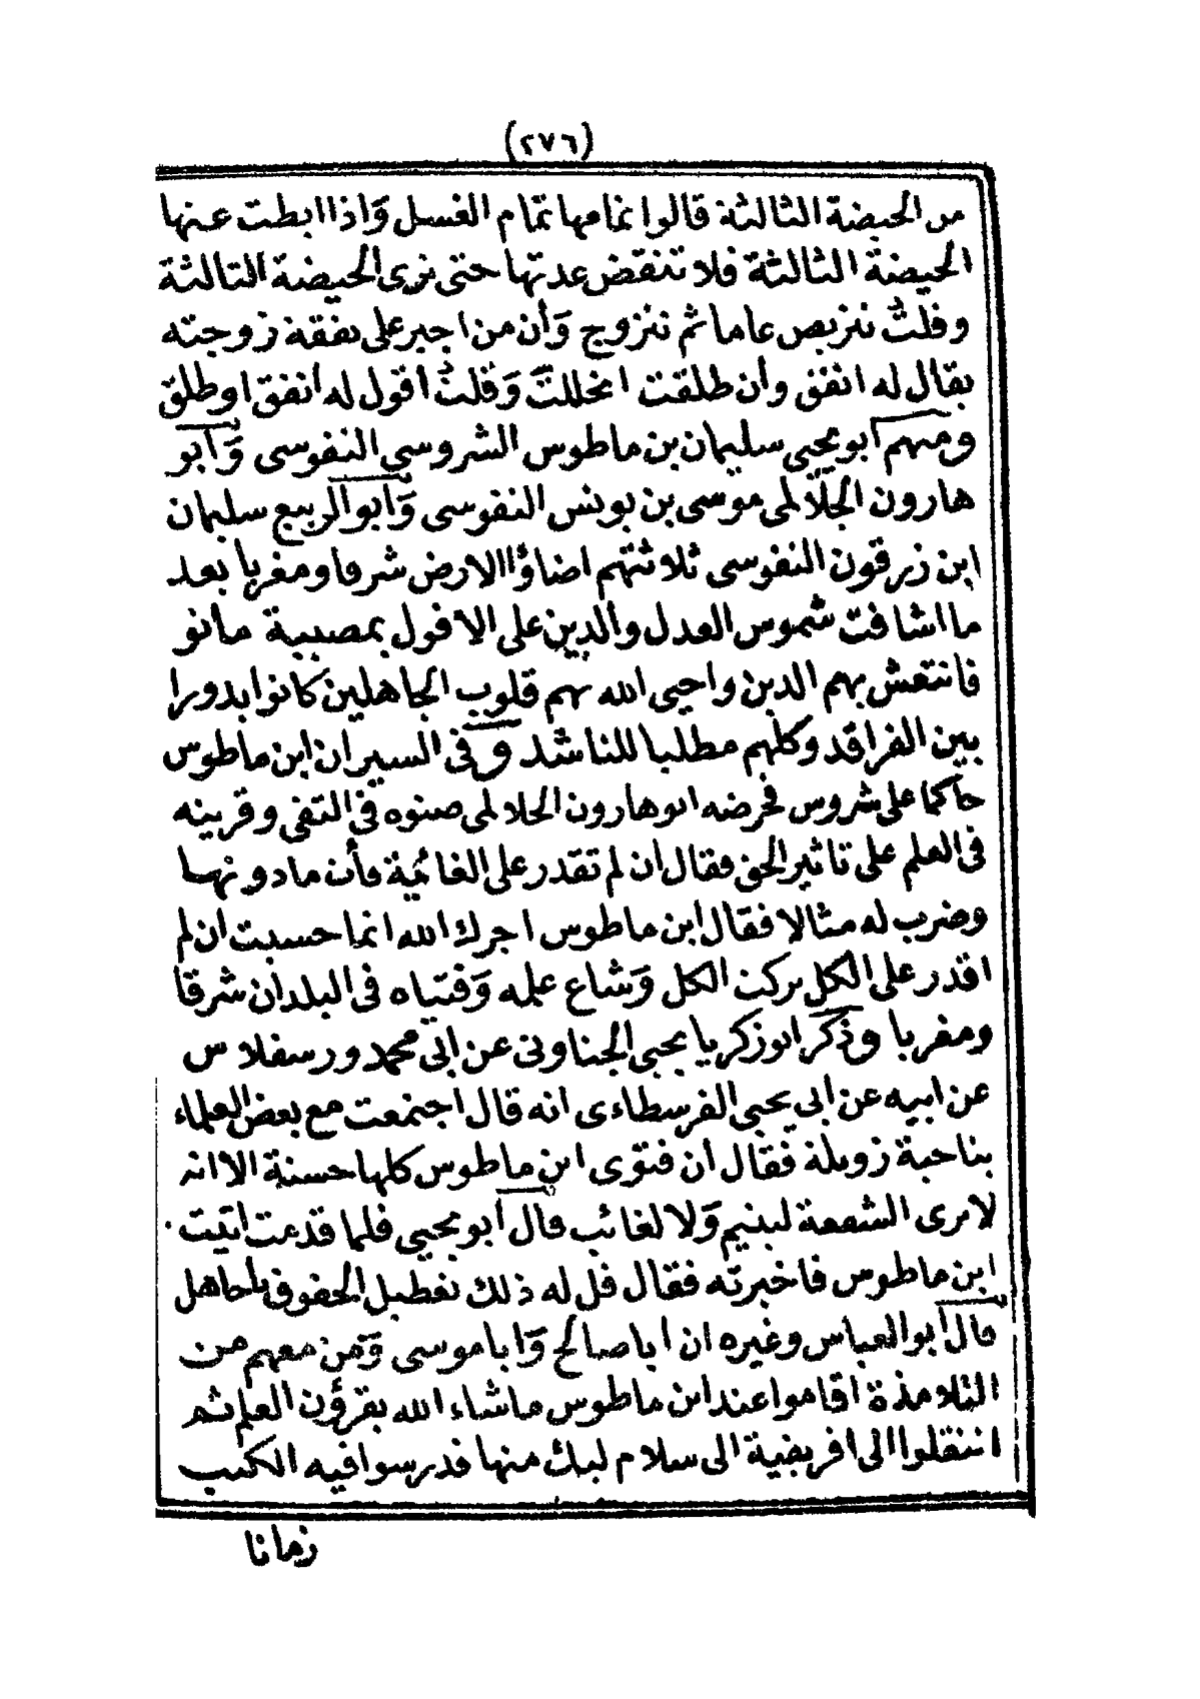 (٢٧٦)
من الحيضة الثالثة قالوا تمامها تمام الغسل وَاذا ابطت عنها
الحيضة الثالثة فلا تنقض عدتها حتى ترى الحيضة الثالثة
وقلتُ تتربص عاما ثم تتزوج وَأن من اجبر على نفقة زوجته
يقال له انفق وأن طلقت انحللت وَقلتُ أقول له أنفق اوطلق
ومنهم أبو يحيى سليمان بن ماطوس الشروسي النفوسى وَأبو
هارون الجلّالمى موسى بن يونس النفوسى وَأبوالربيع سليمان
ابن زرقون النفوسى ثلاثتهم اضاؤا الارض شرقا ومغربا بعد
ما اشافت شموس العدل والدين على الافول بمصيبة مانو
فانتعش بهم الدين واحيى الله بهم قلوب الجاهلين كانوا بدورا
بين الفراقد وكلهم مطلبا للناشد وفى السير ان ابن ماطوس
حاكما على شروس فحرضه ابو هارون الجلالمى صنوه فى التقى وقرينه
فى العلم على تاثير الحق فقال ان لم تقدر على الغائية فأن مادونها
وضرب له مثالا فقال ابن ماطوس اجرك الله انما حسبت ان لم
اقدر على الكل تركت الكل وَشاع علمه وَفتياه فى البلدان شرقا
ومغربا وذكر ابو زكريا يحيى الجناونى عن ابى محمد ورسفلاس
عن ابيه عن ابى يحيى الفرسطاءى انه قال اجتمعت مع بعض العلماء
بناحية زويلة فقال أن فتوى ابن ماطوس كلها حسنة الا انه
لا يرى الشفعة ليتيم وَلا لغائب قال أبو يحيى فلما قدعت اتيت
ابن ماطوس فاخبرته فقال قل له ذلك تعطيل الحقوق ياجاهل
قال أبوالعباس وغيره ان أبا صالح وَابا موسى وَمن معهم من
التلامذة اقاموا عند ابن ماطوس ماشاء الله يقرؤن العلم ثم
انتقلوا الى افريقية الى سلام لبك منها فدرسوا فيه الكتب
زمانا